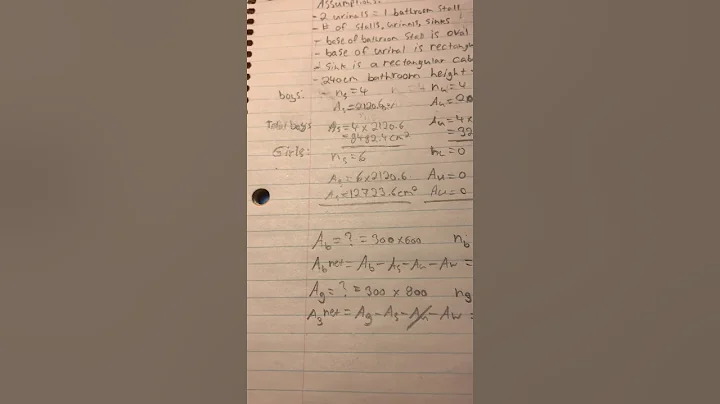 Assumptions
- 2 urinals = 1 bathroom stall
- # of stalls, urinals, sinks
- base of bathroom stall is oval
- base of urinal is rectang
- sink is a rectangular
- 240cm bathroom height
boys: - ns=4 nu=4
As=2120.6
Total boys As=4×2120.6 Au=4×
=8482.4cm² =32
Girls: ns=6 nu=0
As=6×2120.6 Au=0
As=12723.6cm² Au=0
Ab=?=300×600 nb
Abnet=Ab-As-Au-Aw=
Ag=?=300×800 ng
Agnet=Ag-As-Au-Aw=